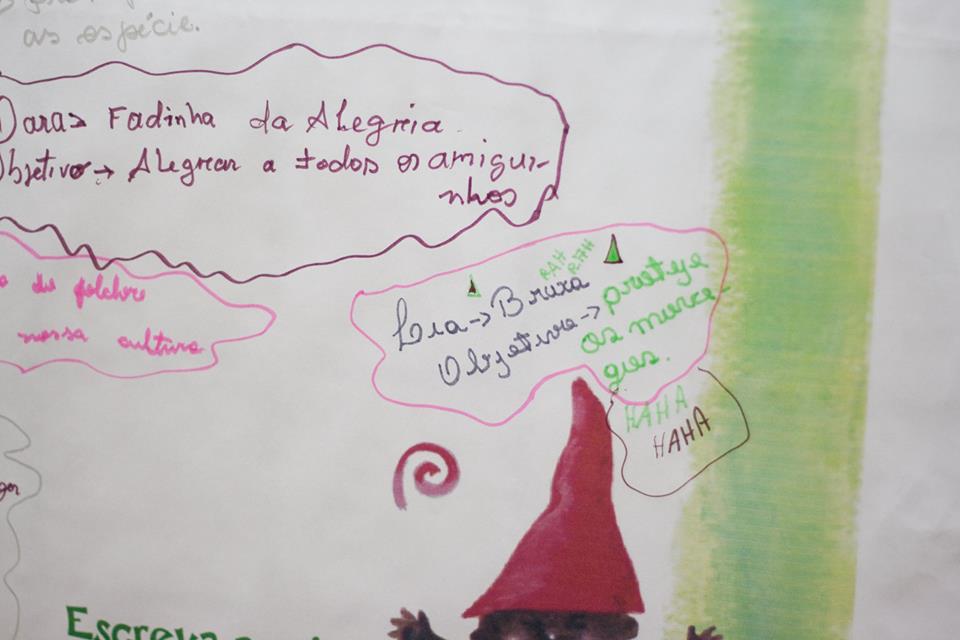 as espécie.
Dara> Fadinha da Alegria
Objetivo → Alegrar a todos os amigui-
nhos
do folclore
nossa cultura
RAH
RIHH
Lia → Bruxa
Objetivo → proteje
os morce-
gos.
HAHA
HAHA